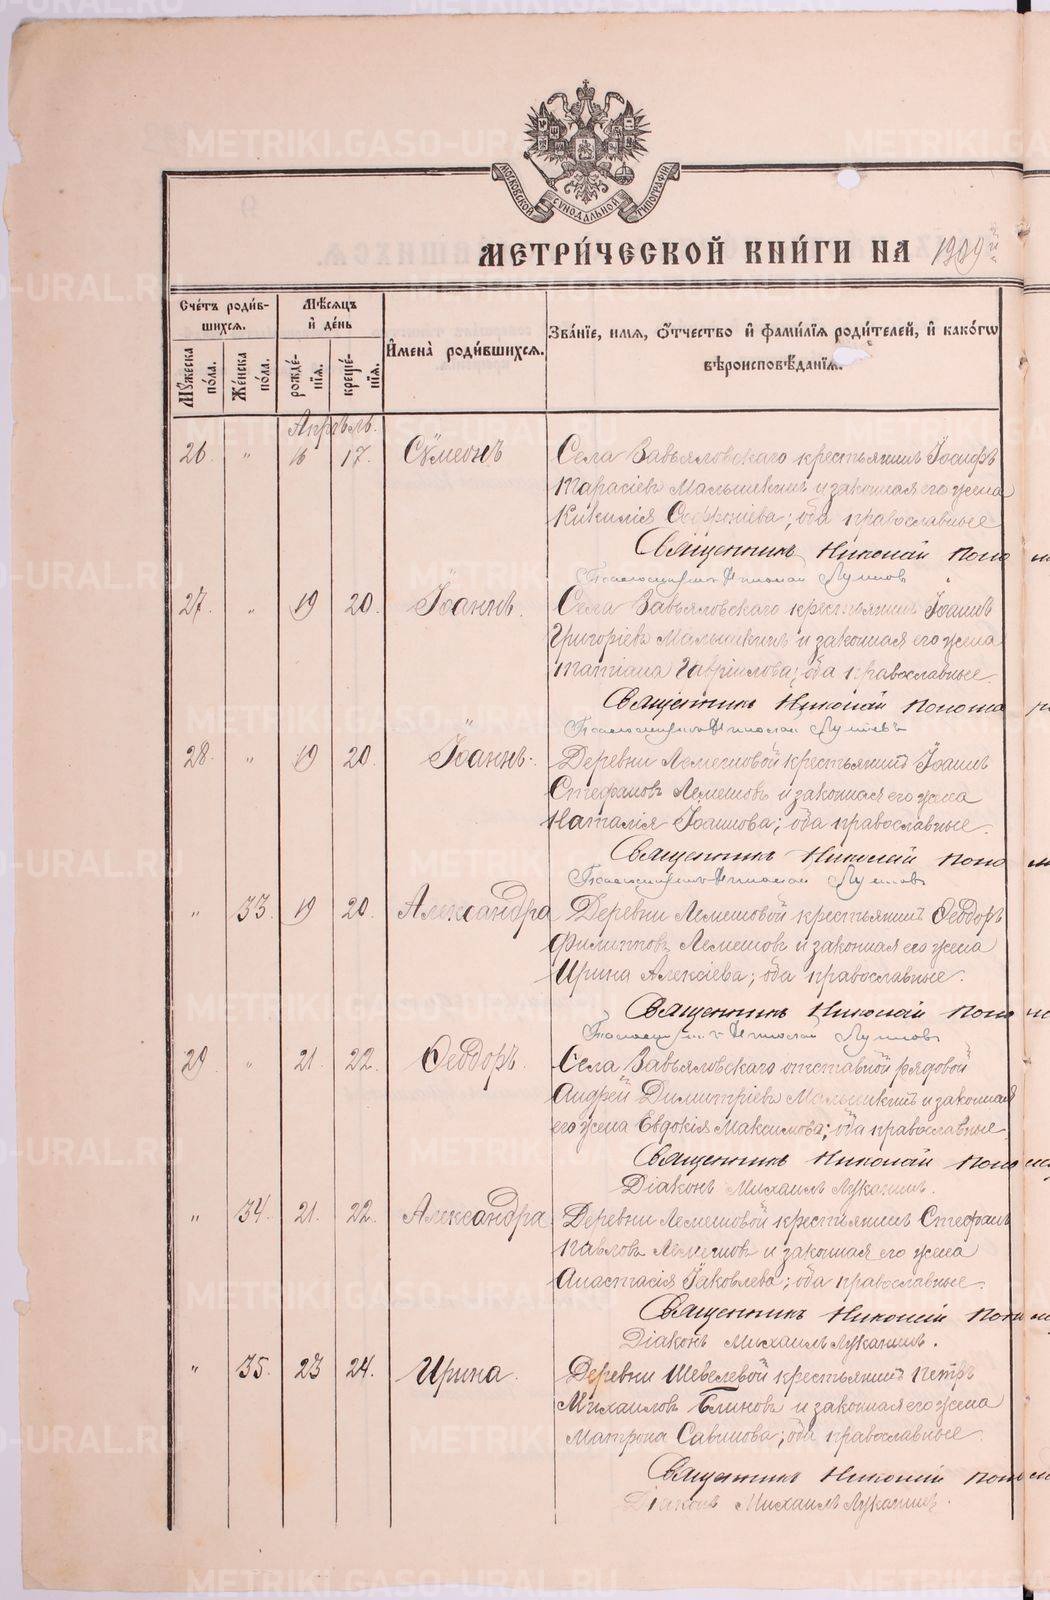 МОСКОВСКОЙ СѴНОДАЛЬНОЙ ТИПОГРАФІИ
МЕТРИ́ЧЕСКОЙ КНИ́ГИ НА 1909й
Сче́тъ роди́вшихсѧ.
Мѣ́сѧцъ и҆ де́нь
И҆мена̀ роди́вшихсѧ.
Зва́нїе, имѧ, ѻ҆́тчество и҆ фами́лїѧ роди́телей, и҆ како́гѡ
вѣроисповѣ́данїѧ.
Мꙋ́жеска по́ла.
Же́нска по́ла.
рожде́нїѧ.
креще́нїѧ.
Апрѣль.
26. " 16 17. Сѵмеонъ Села Завьяловскаго крестьянинъ Іосифъ
Тарасіевъ Малышкинъ и законная его жена
Кикилія Софроніева; оба православные
Священникъ Николай Поно
Псаломщикъ Николай
27. " 19 20. Іоаннъ. Села Завьяловскаго крестьянинъ Іоаннъ
Григоріевъ Малышкинъ и законная его жена
Татіана Гавріилова; оба православные.
Священникъ Николай Понома
Псаломщикъ Николай
28. " 19 20. Іоаннъ. Деревни Лемешовой крестьянинъ Іоаннъ
Стефановъ Лемешовъ и законная его жена
Наталія Іоаннова; оба православные.
Священникъ Николай Поно
Псаломщикъ Николай
" 33. 19 20. Александра Деревни Лемешовой крестьянинъ Ѳеодоръ
Филипповъ Лемешовъ и законная его жена
Ирина Алексіева; оба православные.
Священникъ Николай Поно
Псаломщикъ Николай
29 " 21. 22. Ѳеодоръ. Села Завьяловскаго отставной рядовой
Андрей Димитріевъ Малышкинъ и законная
его жена Евдокія Максимова; оба православные
Священникъ Николай Поно
Діаконъ Михаилъ Луканинъ.
" 34. 21. 22. Александра. Деревни Лемешовой крестьянинъ Стефанъ
Павловъ Лемешовъ и законная его жена
Анастасія Іаковлева; оба православные.
Священникъ Николай Поно
Діаконъ Михаилъ Луканинъ.
" 35. 23 24. Ирина. Деревни Шевелевой крестьянинъ Петръ
Михаиловъ Блиновъ и законная его жена
Матрона Саввинова; оба православные.
Священникъ Николай Поно
Діаконъ Михаилъ Луканинъ.
METRIKI.GASO-URAL.RU